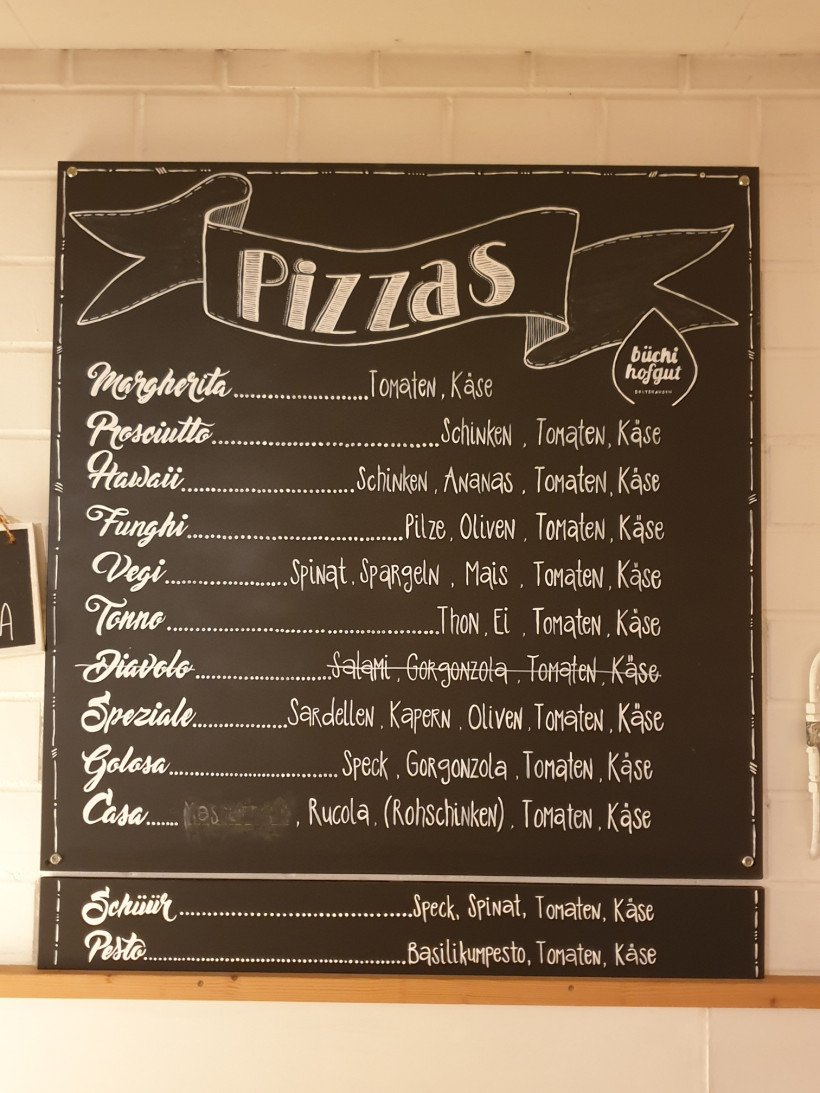 Pizzas
büchi
hofgut
Margherita..................Tomaten, Käse
Prosciutto..............................Schinken, Tomaten, Käse
Hawaii.......................Schinken, Ananas, Tomaten, Käse
Funghi.............................Pilze, Oliven, Tomaten, Käse
Vegi................Spinat, Spargeln, Mais, Tomaten, Käse
Tonno....................................Thon, Ei, Tomaten, Käse
Diavolo..................Salami, Gorgonzola, Tomaten, Käse
Speziale............Sardellen, Kapern, Oliven, Tomaten, Käse
Golosa......................Speck, Gorgonzola, Tomaten, Käse
Casa...... , Rucola, (Rohschinken), Tomaten, Käse
Schüür...............................Speck, Spinat, Tomaten, Käse
Pesto..................................Basilikumpesto, Tomaten, Käse
A